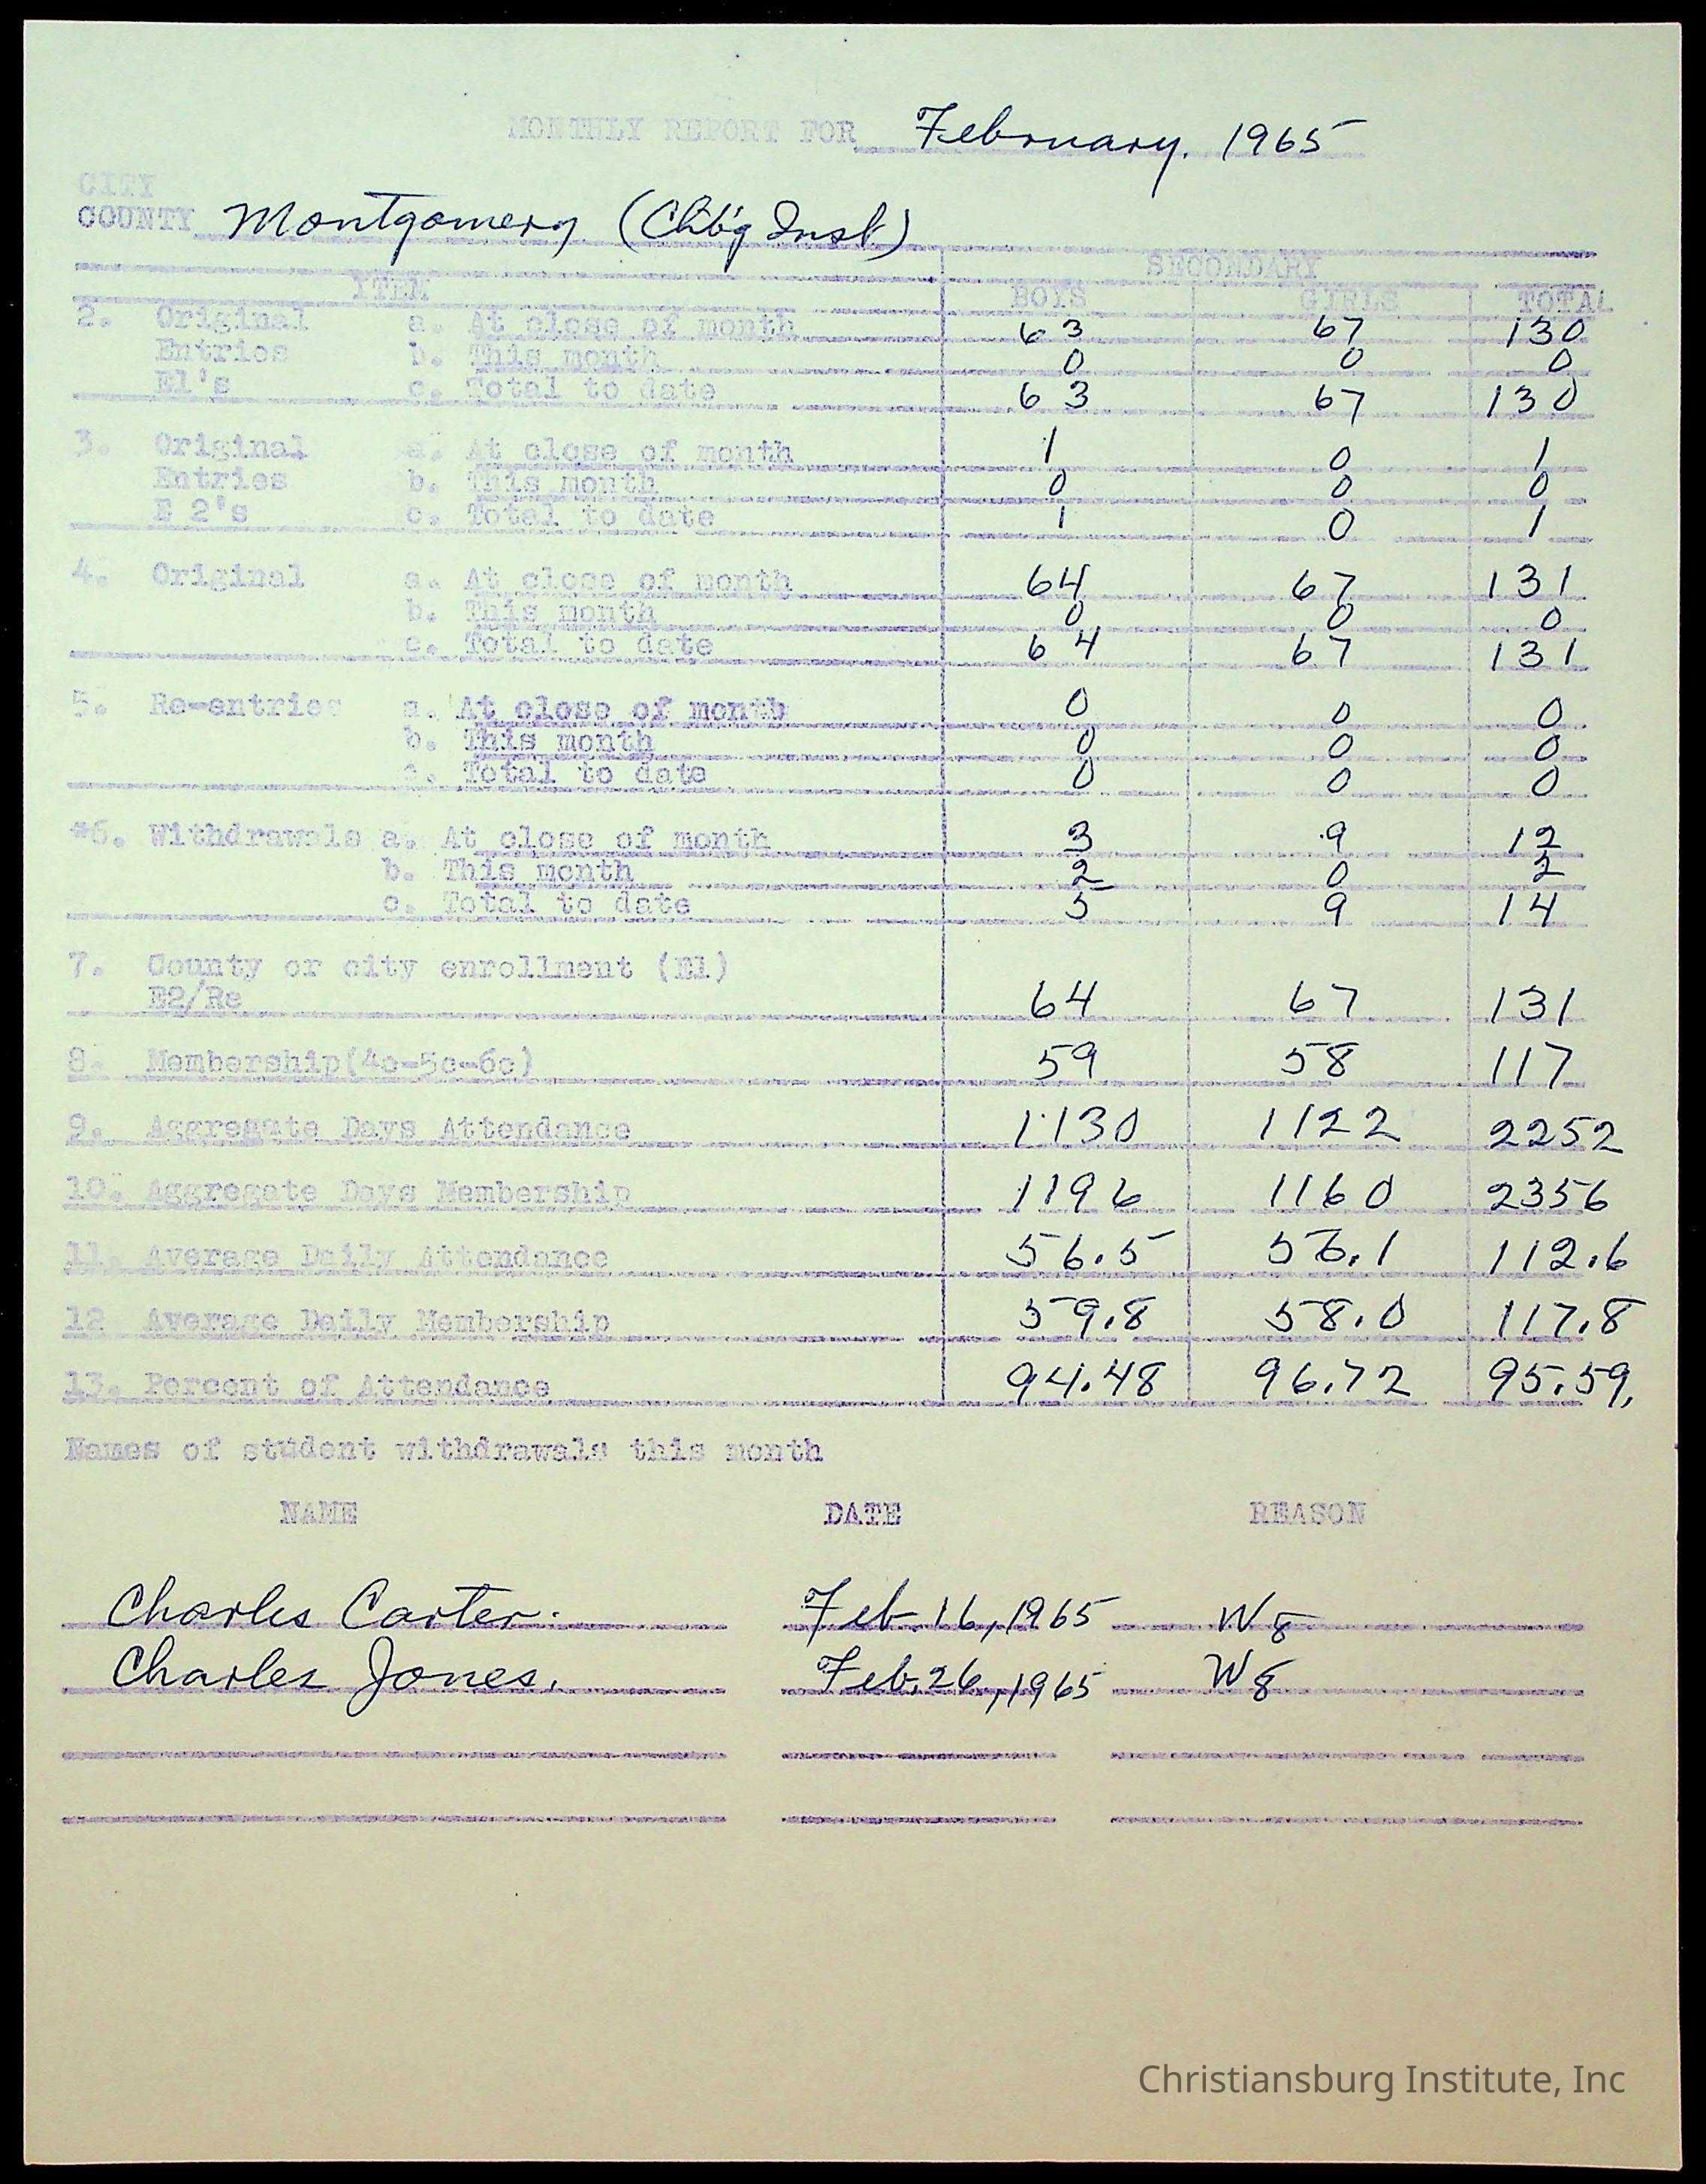 MONTHLY REPORT FOR February, 1965
CITY
COUNTY Montgomery (Chb'g Inst)
SECONDARY
ITEM BOYS GIRLS TOTAL
2. Original a. At close of month 63 67 130
Entries b. This month 0 0 0
E1's c. Total to date 63 67 130
3. Original a. At close of month 1 0 1
Entries b. This month 0 0 0
E 2's c. Total to date 1 0 1
4. Original a. At close of month 64 67 131
b. This month 0 0 0
c. Total to date 64 67 131
5. Re-entries a. At close of month 0 0 0
b. This month 0 0 0
c. Total to date 0 0 0
*6. Withdrawals a. At close of month 3 9 12
b. This month 2 0 2
c. Total to date 5 9 14
7. County or city enrollment (E1)
E2/Re 64 67 131
8. Membership(4c-5c-6c) 59 58 117
9. Aggregate Days Attendance 1130 1122 2252
10. Aggregate Days Membership 1196 1160 2356
11. Average Daily Attendance 56.5 56.1 112.6
12 Average Daily Membership 59.8 58.0 117.8
13. Percent of Attendance 94.48 96.72 95.59,
Names of student withdrawals this month
NAME DATE REASON
Charles Carter. Feb. 16, 1965 W8
Charles Jones. Feb. 26, 1965 W8
Christiansburg Institute, Inc